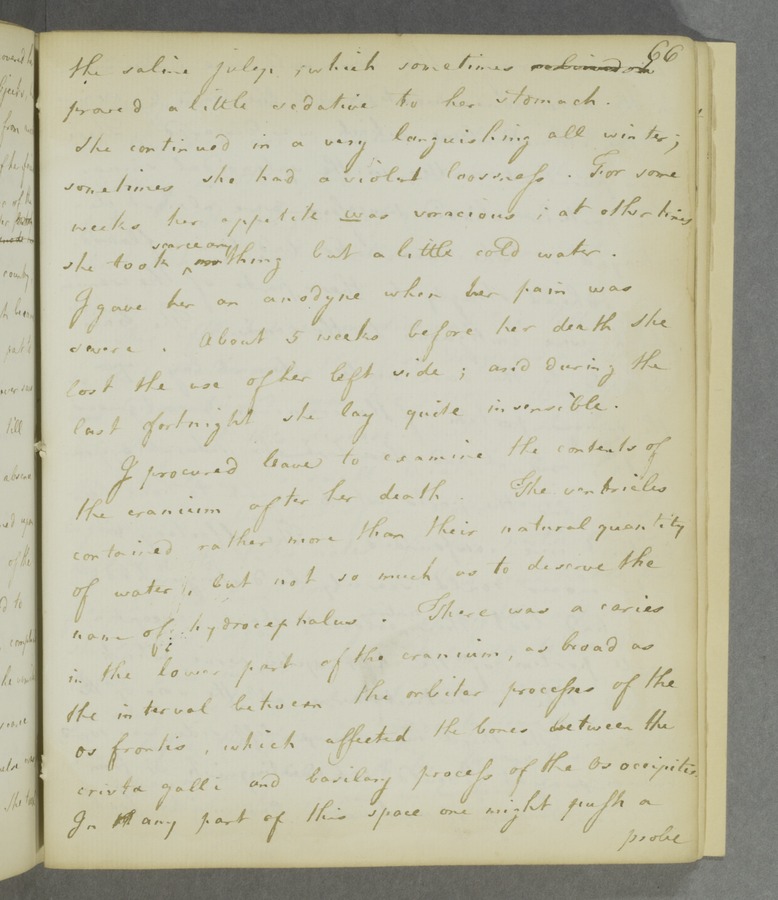 66
the saline julep; which sometimes
proved a little sedative to her stomach.
She continued in a very languishing all winter;
sometimes she had a violent loosness. For some
weeks her appetite was voracious; at other times
she took scarce any thing but a little cold water.
I gave her an anodyne when her pain was
severe. About 5 weeks before her death she
lost the use of her left side; and during the
last fortnight she lay quite insensible.
I procured leave to examine the contents of
the cranium after her death. The ventricles
contained rather more than their natural quantity
of water, but not so much as to deserve the
name of hydrocephalus. There was a caries
in the lower part of the cranium, as broad as
the interval between the orbitar processes of the
os frontis, which affected the bones between the
crista galli and basilary process of the os occipitis.
In any part of this space one might push a
probe